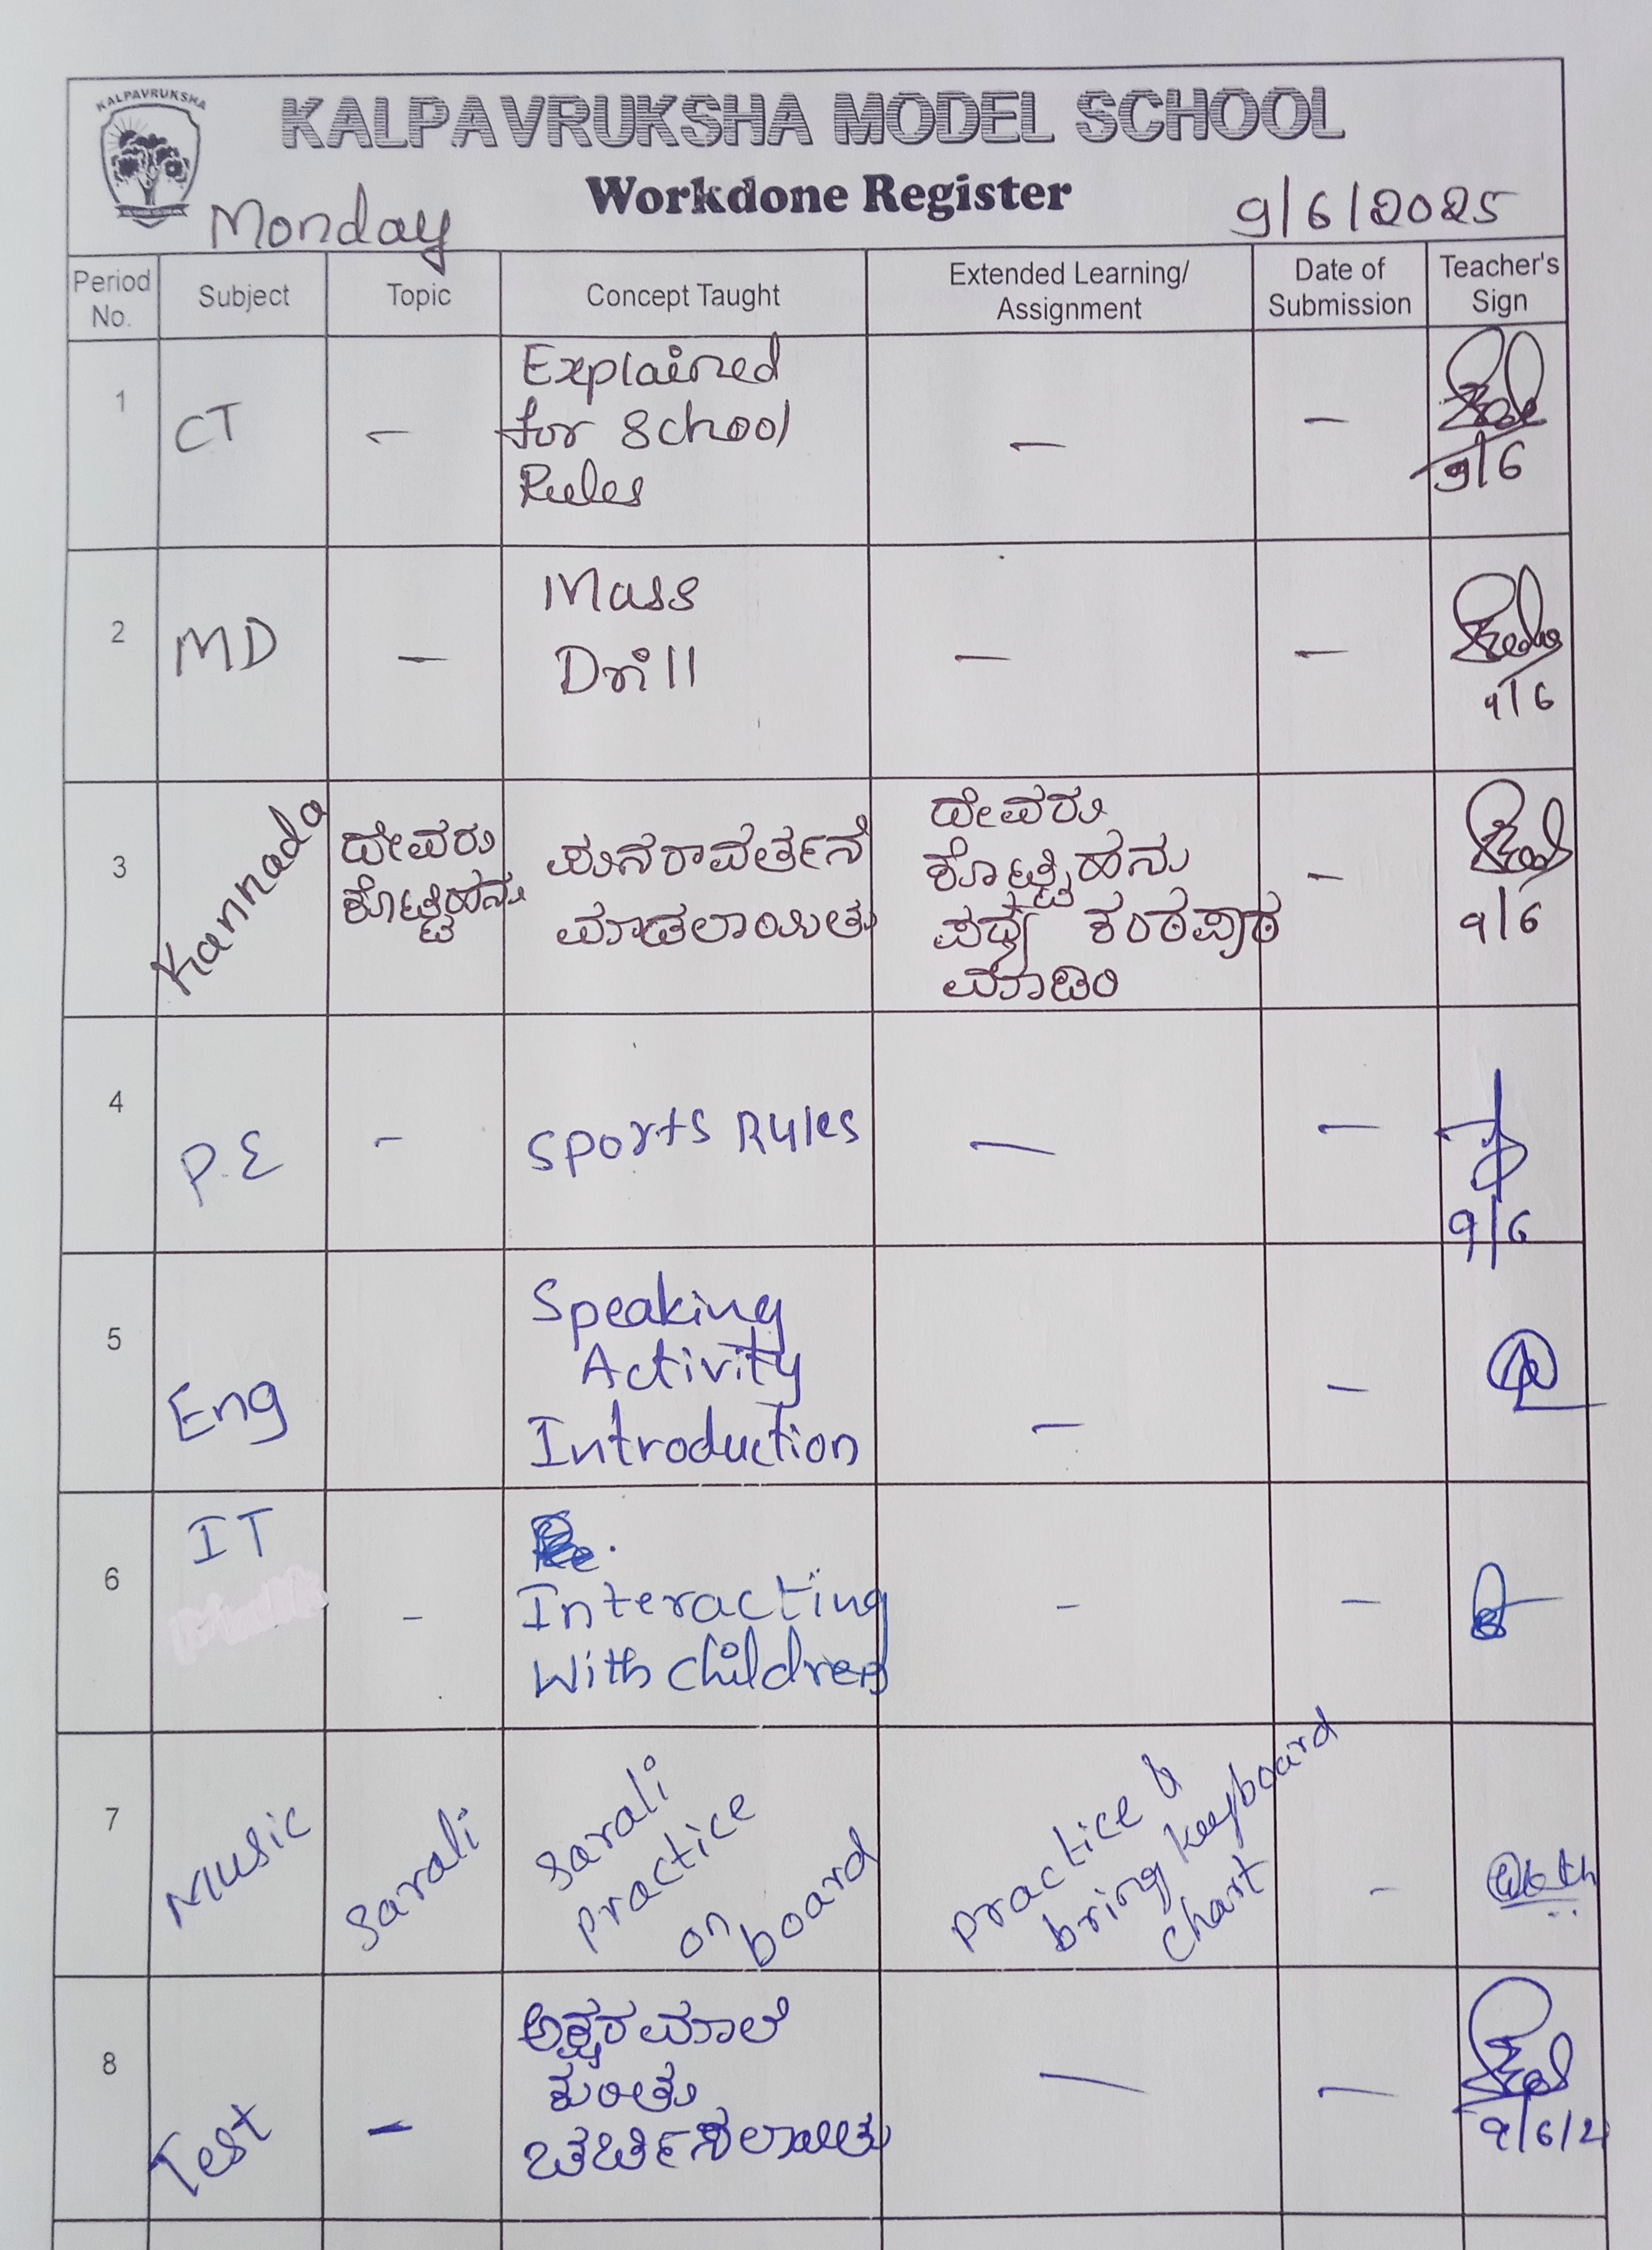 KALPAVRUKSHA
KALPAVRUKSHA MODEL SCHOOL
Workdone Register
Monday
9/6/2025
Period No.
Subject
Topic
Concept Taught
Extended Learning/
Assignment
Date of
Submission
Teacher's
Sign
1
CT
-
Explained
for School
Rules
-
-
9/6
2
MD
-
Mass
Drill
-
-
9/6
3
Kannada
ದೇವರು
ಕೊಟ್ಟಿಹನು
ಪುನರಾವರ್ತನೆ
ಮಾಡಲಾಯಿತು
ದೇವರು
ಕೊಟ್ಟಿಹನು
ಪದ್ಯ ಕಂಠಪಾಠ
ಮಾಡಿರಿ
-
9/6
4
P.E
-
Sports Rules
-
-
9/6
5
Eng
Speaking
Activity
Introduction
-
-
6
IT
-
Interacting
With children
-
-
7
Music
Sarali
Sarali
practice
on
board
practice &
bring keyboard
chart
-
8
Test
-
ಅಕ್ಷರಮಾಲೆ
ಕುರಿತು
ಚರ್ಚಿಸಲಾಯಿತು
-
-
9/6/2